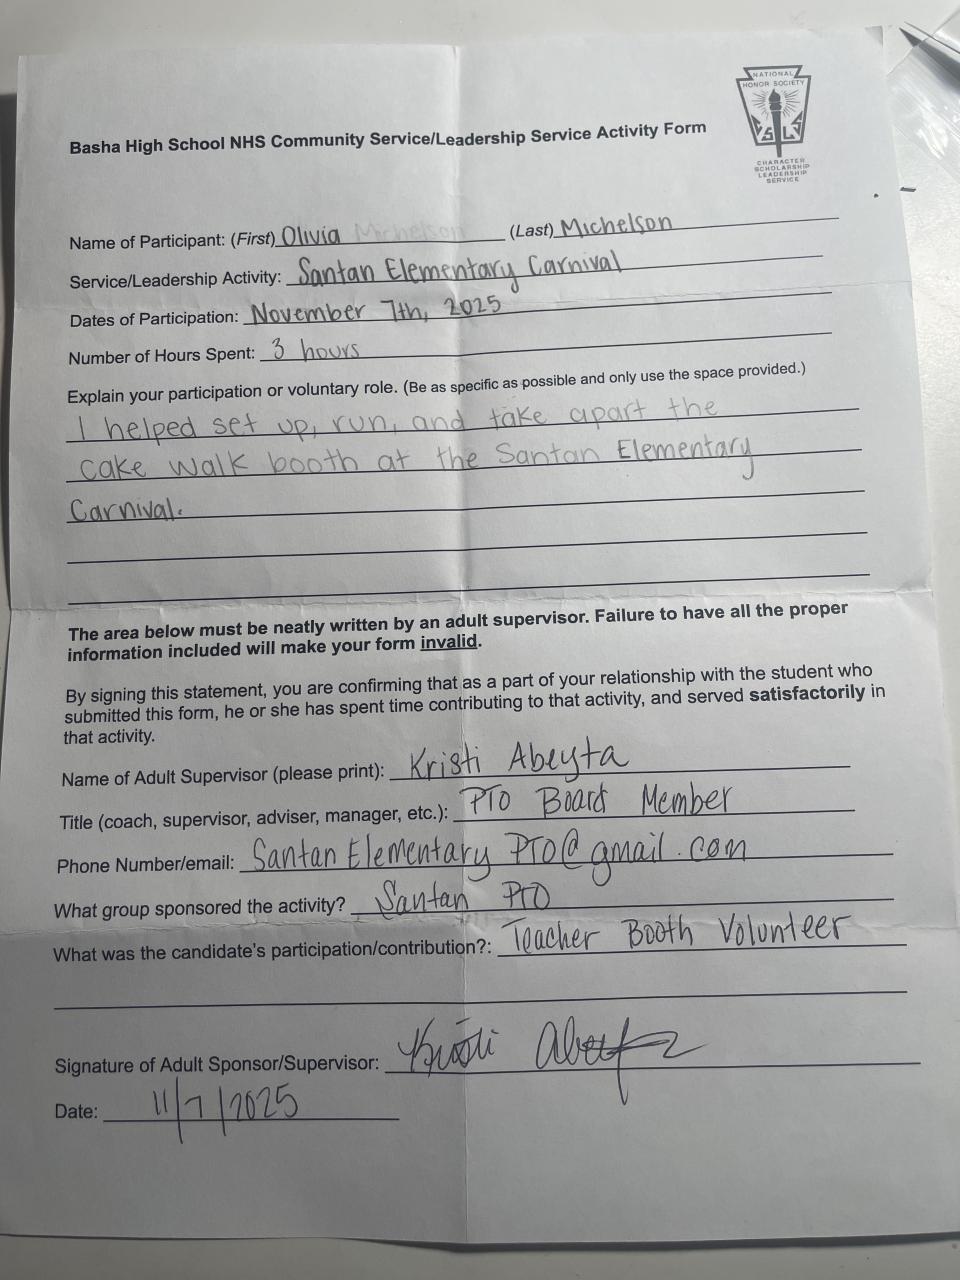 NATIONAL
HONOR SOCIETY
S L S
CHARACTER
SCHOLARSHIP
LEADERSHIP
SERVICE
Basha High School NHS Community Service/Leadership Service Activity Form
Name of Participant: (First) Olivia Michelson (Last) Michelson
Service/Leadership Activity: Santan Elementary Carnival
Dates of Participation: November 7th, 2025
Number of Hours Spent: 3 hours
Explain your participation or voluntary role. (Be as specific as possible and only use the space provided.)
I helped set up, run, and take apart the
cake walk booth at the Santan Elementary
Carnival.
The area below must be neatly written by an adult supervisor. Failure to have all the proper
information included will make your form invalid.
By signing this statement, you are confirming that as a part of your relationship with the student who
submitted this form, he or she has spent time contributing to that activity, and served satisfactorily in
that activity.
Name of Adult Supervisor (please print): Kristi Abeyta
Title (coach, supervisor, adviser, manager, etc.): PTO Board Member
Phone Number/email: Santan Elementary PTO@gmail.com
What group sponsored the activity? Santan PTO
What was the candidate's participation/contribution?: Teacher Booth Volunteer
Signature of Adult Sponsor/Supervisor: Kristi Abeyta
Date: 11/7/2025